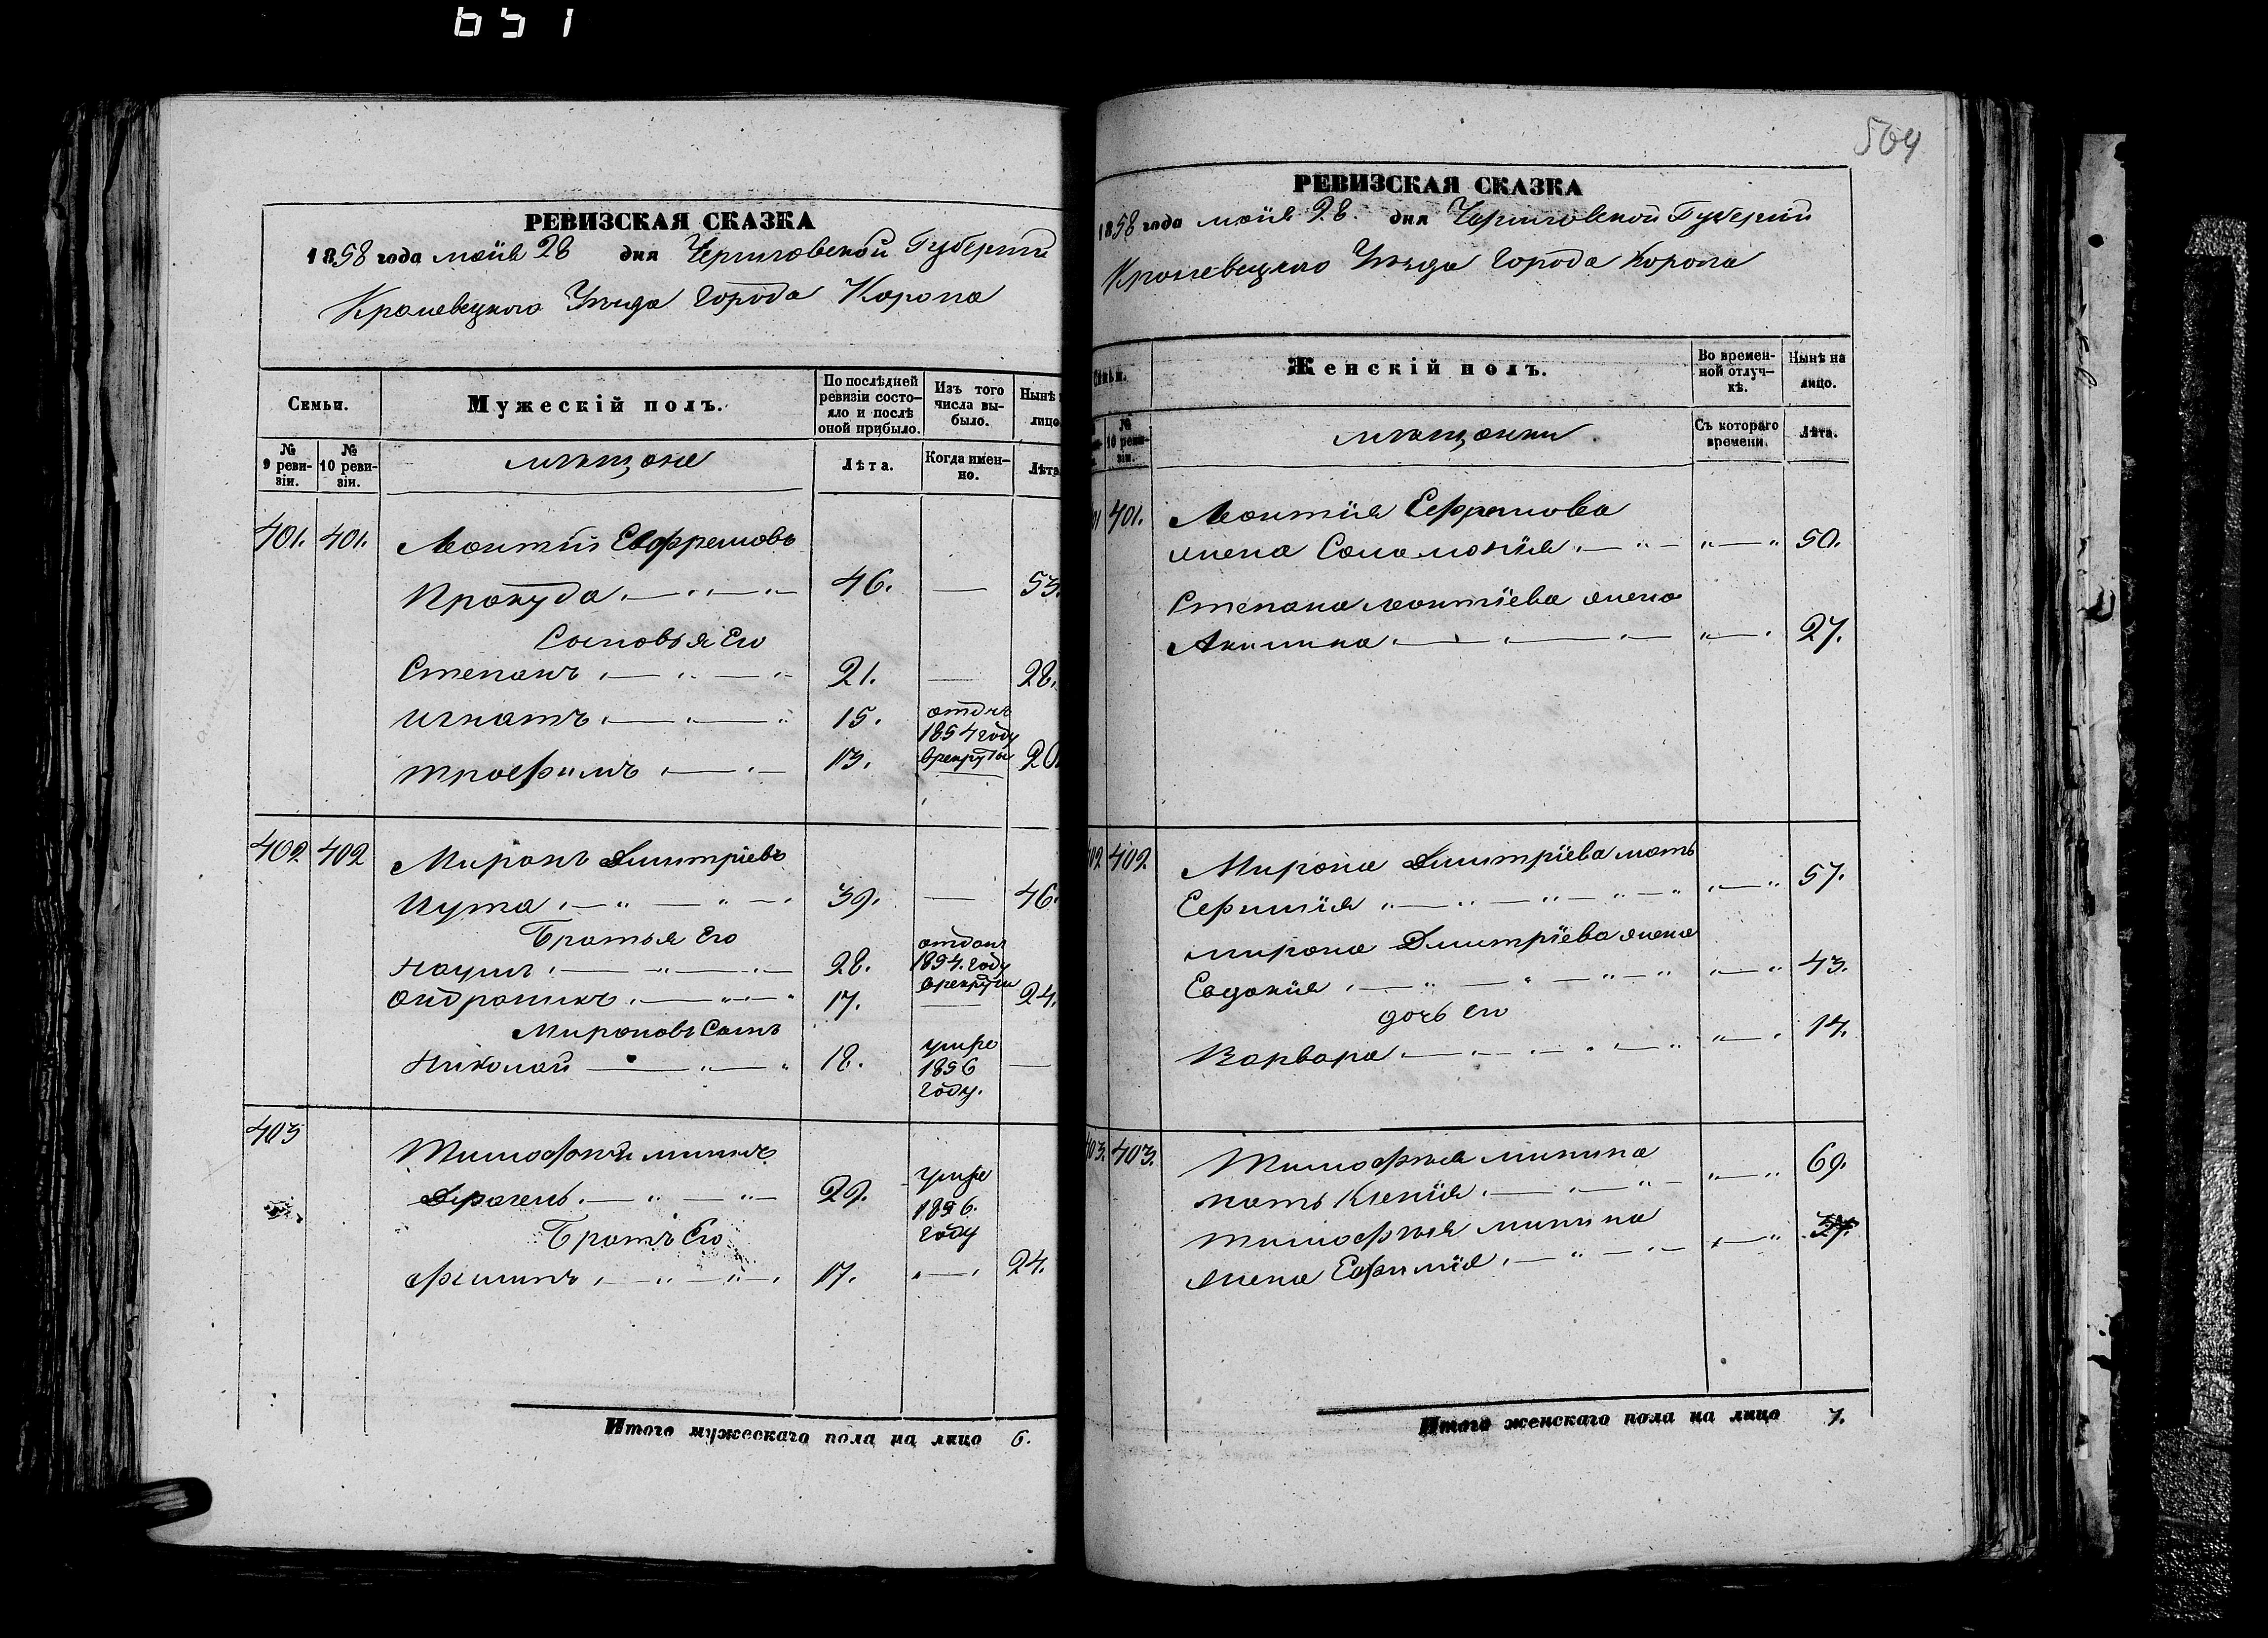 651
РЕВИЗСКАЯ СКАЗКА
1858 года маія 28 дня Черниговской Губерніи
Кролевецкого Уѣзда города Коропа
Семьи.
№ 9 реви-
зіи.
№ 10 реви-
зіи.
Мужескій полъ.
мѣщане
По послѣдней
ревизіи состо-
яло и послѣ
оной прибыло.
Лѣта.
Изъ того
числа вы-
было.
Когда имен-
но.
Нынѣ
лицо
Лѣта
401. 401. Леонтій Евфремовъ
Прокуда 46. — 53.
Сыновья Его
Степанъ 21. — 28.
Игнатъ 15. отданъ
1854 году
в рекруты
Трофимъ 13. — 20
402 402 Миронъ Дмитріевъ
39. — 46.
Братья Его
Наумъ 28. отданъ
1854. году
в рекруты
Андроникъ 17. — 24.
Мироновъ Сынъ
Николай 18. умре
1856
году.
403 Тимофѣй мининъ
29. умре
1856.
году
Братъ Его
Филипъ 17. 24.
Итого мужескаго пола на лицо 6.
504
РЕВИЗСКАЯ СКАЗКА
1858 года маія 28. дня Черниговской Губерніи
Кролевецкого Уѣзда города Коропа
Семьи.
№
10 реви-
зіи.
Женскій полъ.
мѣщанки
Во времен-
ной отлуч-
кѣ.
Съ котораго
времени.
Нынѣ на
лицо.
Лѣта.
01 401. Леонтія Ефремова
жена Соломонія 50.
Степана леонтіева жена
Акилина 27.
02 402. Мирона Дмитріева мать
Ефимія 57.
мирона Дмитріева жена
Евдокія 43.
дочь его
Варвара 14.
03. 403. Тимофѣя минина
мать Ксенія 69.
тимофѣя минина
жена Ефимія 37.
Итого женскаго пола на лицо 7.